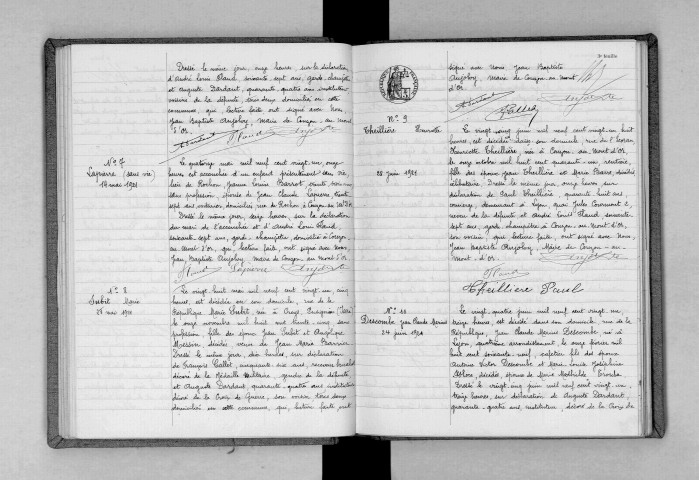 Dressé le même jour, onze heures, sur la déclaration
d'André Louis Claud, soixante sept ans, garde champêtre
et Auguste Dardant, quarante quatre ans instituteur
voisins de la défunte, tous deux domiciliés en cette
commune, qui, lecture faite ont signé avec nous,
Jean Baptiste Anjolvy, maire de Couzon au mont
d'Or.
N° 7
Laperre (sans vie)
14 mai 1921
Le quatorze mai mil neuf cent vingt un, onze
heures est accouchée d'un enfant présentement sans vie,
rue de Rochon Jeanne Louise Barrot, vingt
sans profession, épouse de Jean Claude Laperre, trente
sept ans, domiciliés rue de Rochon à Couzon au Mt d'Or
Dressé le même jour, seize heures, sur la déclaration
du mari de l'accouchée et d'André Louis Claud,
soixante sept ans, garde champêtre, domicilié à Couzon
au mont d'Or, qui, lecture faite, ont signé avec nous,
Jean Baptiste Anjolvy, maire de Couzon au Mont d'Or
N° 8
Marie
28 mai 1921
Le vingt huit mai mil neuf cent vingt un, cinq
heures, est décédée en son domicile, rue de la
République Marie née à
le onze novembre mil huit cent trente cinq, sans
profession fille des époux Jean et Angélique
décédés veuve de Jean Marie
Dressé le même jour, dix heures, sur déclaration
de François Callet, cinquante six ans,
décoré de la Médaille Militaire, gendre de la défunte
et Auguste Dardant, quarante quatre ans instituteur
décoré de la Croix de Guerre, son voisin tous deux
domiciliés en cette commune, qui, lecture faite ont
3e feuille
signé avec Nous Jean Baptiste
Anjolvy, maire de Couzon au mont
d'Or
N° 9
Theillière Henriette
23 juin 1921
Le vingt trois juin mil neuf cent vingt un huit
heures, est décédée dans son domicile, rue
Henriette Theillière, née à Couzon au Mont d'Or,
le onze octobre mil huit cent quarante un, rentière,
fille des époux Jean Theillière et Marie décédés
célibataire. Dressé le même jour onze heures sur
déclaration de Paul Theillière, quarante huit ans,
demeurant à Lyon, quai Jules Courmont 2,
neveu de la défunte et André Louis Claud, soixante
sept ans, garde champêtre à Couzon au mont d'Or,
son voisin, qui lecture faite, ont signé avec Nous,
Jean Baptiste Anjolvy, Maire de Couzon au
Mont d'Or.
Theillière Paul
N° 10
Descombe Jean Claude Marius
24 juin 1921
Le vingt quatre juin mil neuf cent vingt un
treize heures est décédé dans son domicile rue de la
République, Jean Claude Marius Descombe né à
Lyon, quatrième arrondissement, le onze février mil
huit cent soixante neuf, cafetier fils des époux
Antoine Victor Descombe et Marie Louise Joséphine
décédés, époux de Marie Mathilde
Dressé le vingt cinq juin mil neuf cent vingt un,
heures, sur déclaration de Auguste Dardant,
quarante quatre ans, instituteur, décoré de la Croix de